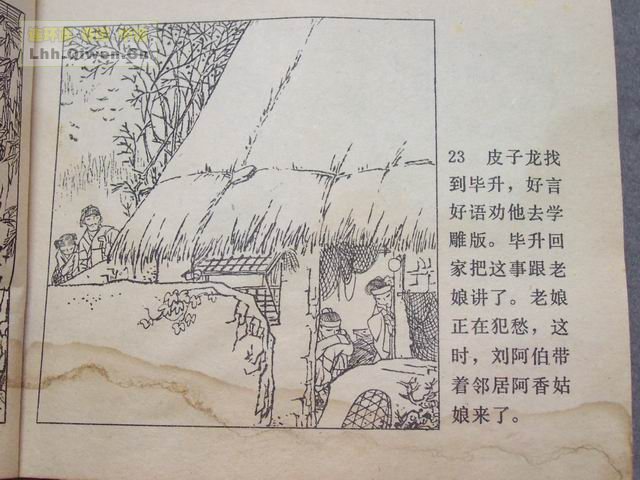 Lhh.Qiwen.Cn
23 皮子龙找
到毕升，好言
好语劝他去学
雕版。毕升回
家把这事跟老
娘讲了。老娘
正在犯愁，这
时，刘阿伯带
着邻居阿香姑
娘来了。